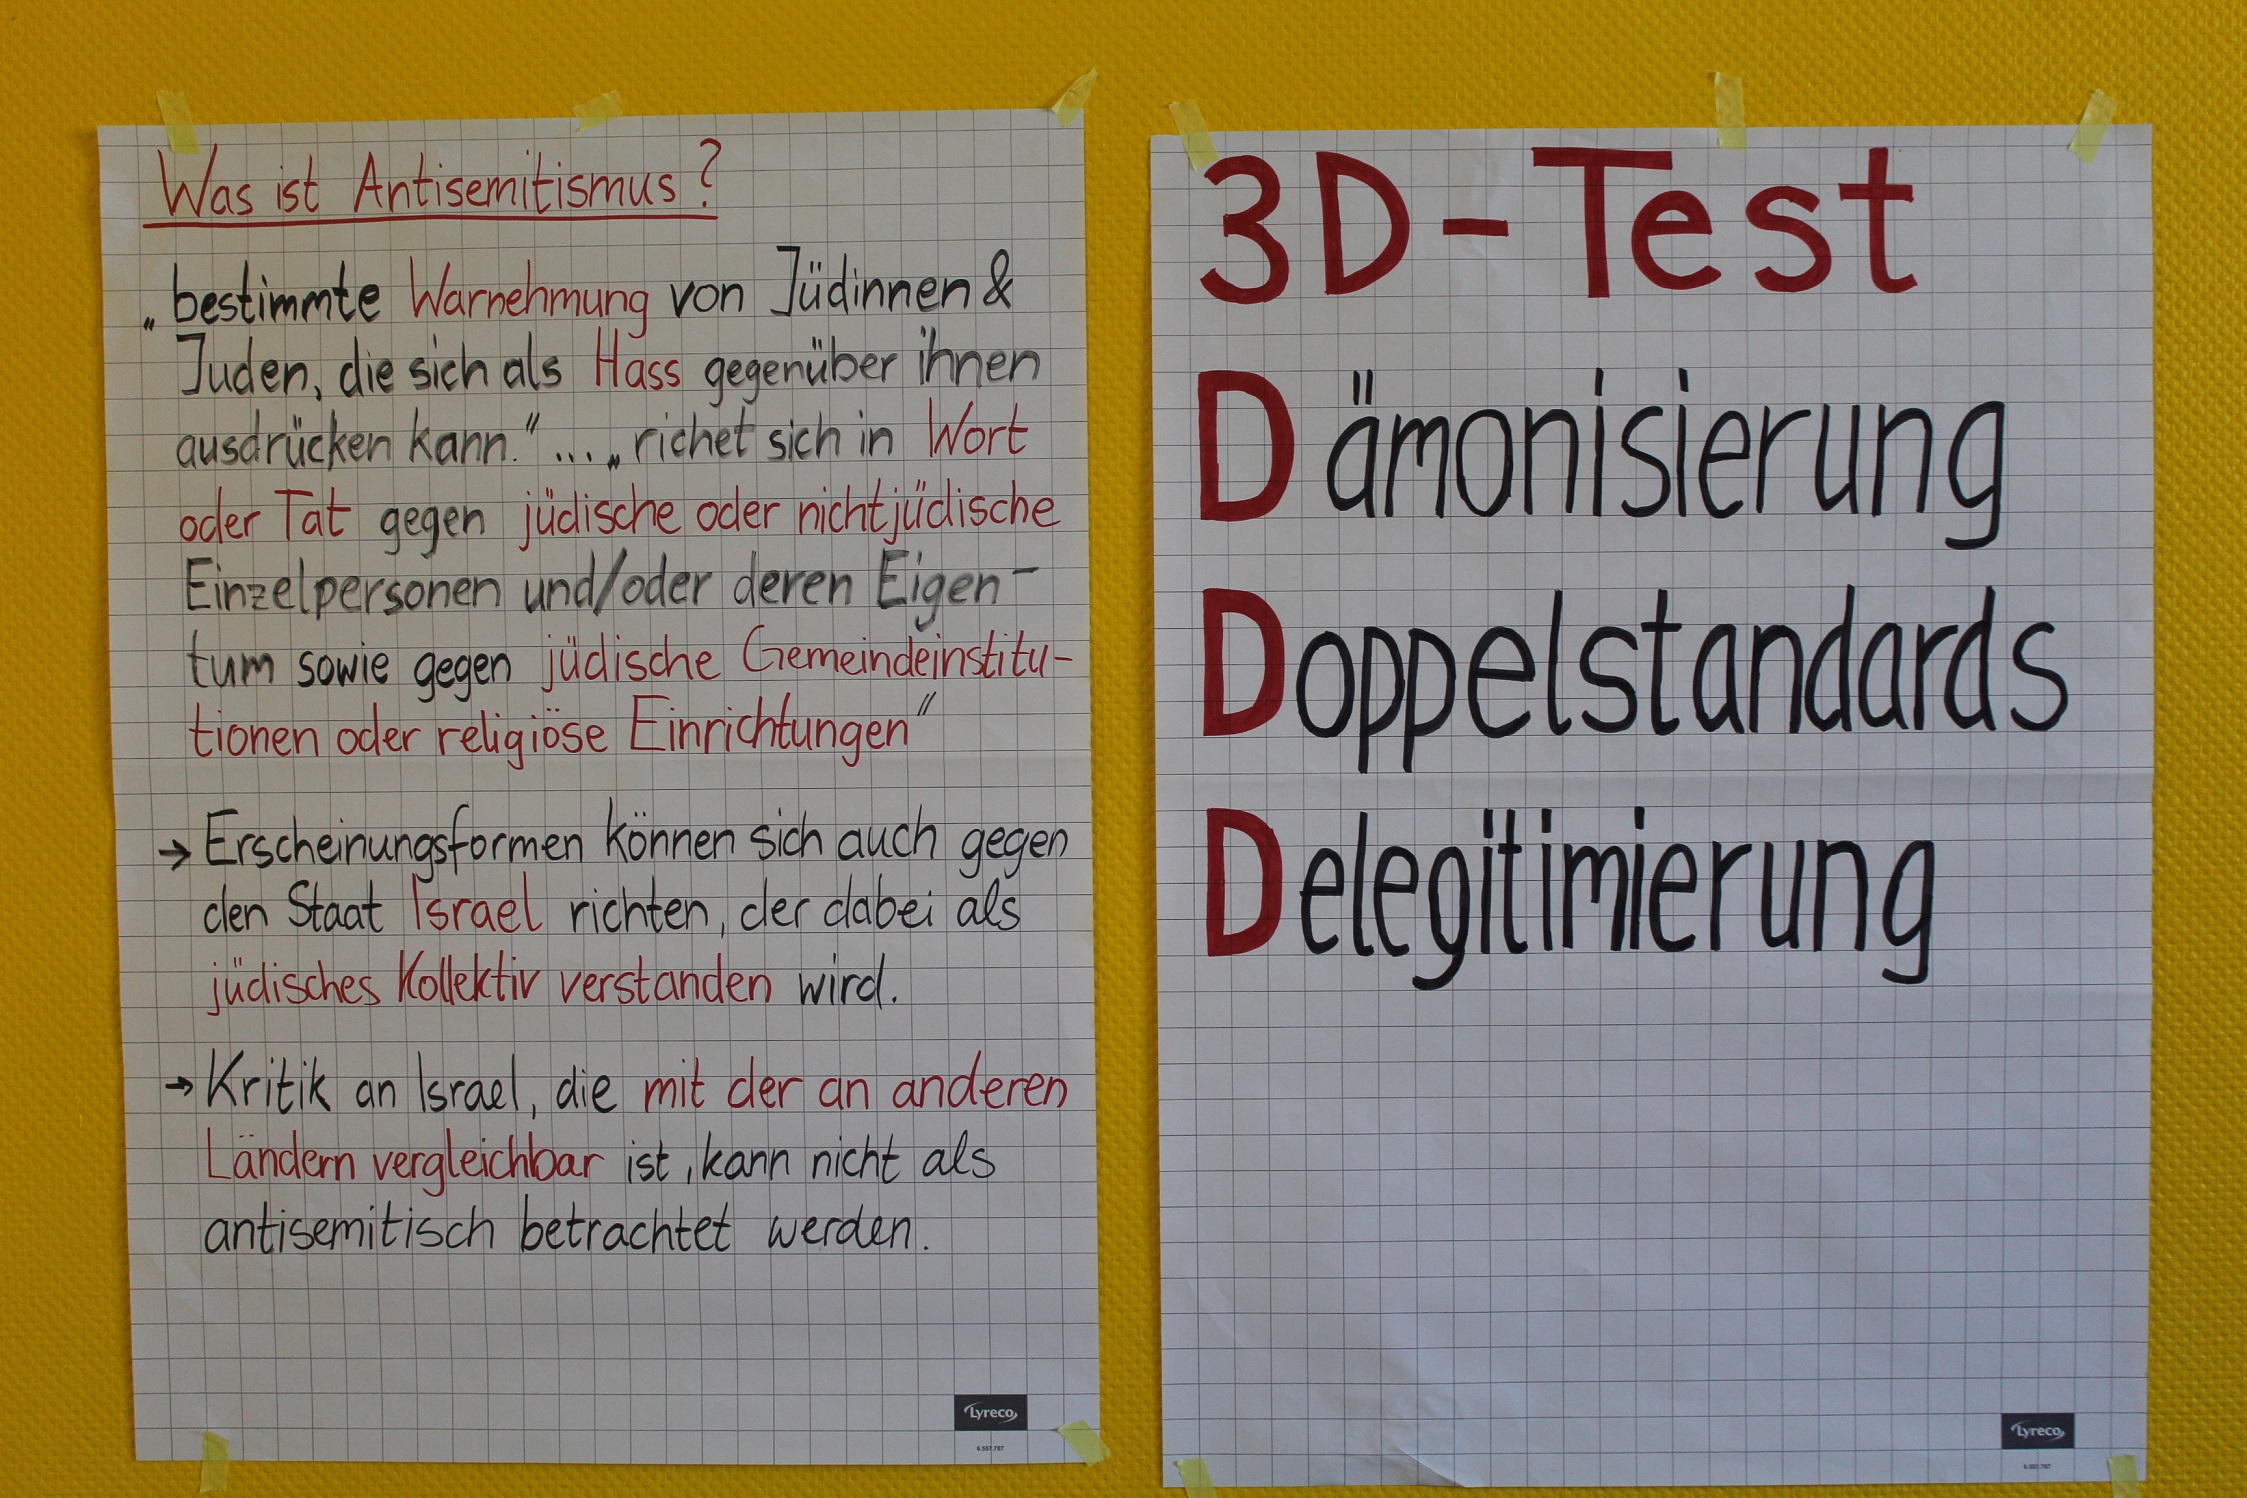 Was ist Antisemitismus?
„bestimmte Warnehmung von Jüdinnen &
Juden, die sich als Hass gegenüber ihnen
ausdrücken kann."...„richet sich in Wort
oder Tat gegen jüdische oder nichtjüdische
Einzelpersonen und/oder deren Eigen-
tum sowie gegen jüdische Gemeindeinstitu-
tionen oder religiöse Einrichtungen"
→ Erscheinungsformen können sich auch gegen
den Staat Israel richten, der dabei als
jüdisches Kollektiv verstanden wird.
→ Kritik an Israel, die mit der an anderen
Ländern vergleichbar ist, kann nicht als
antisemitisch betrachtet werden.
Lyreco
6.557.787
3D-Test
Dämonisierung
Doppelstandards
Delegitimierung
Lyreco
6.557.787